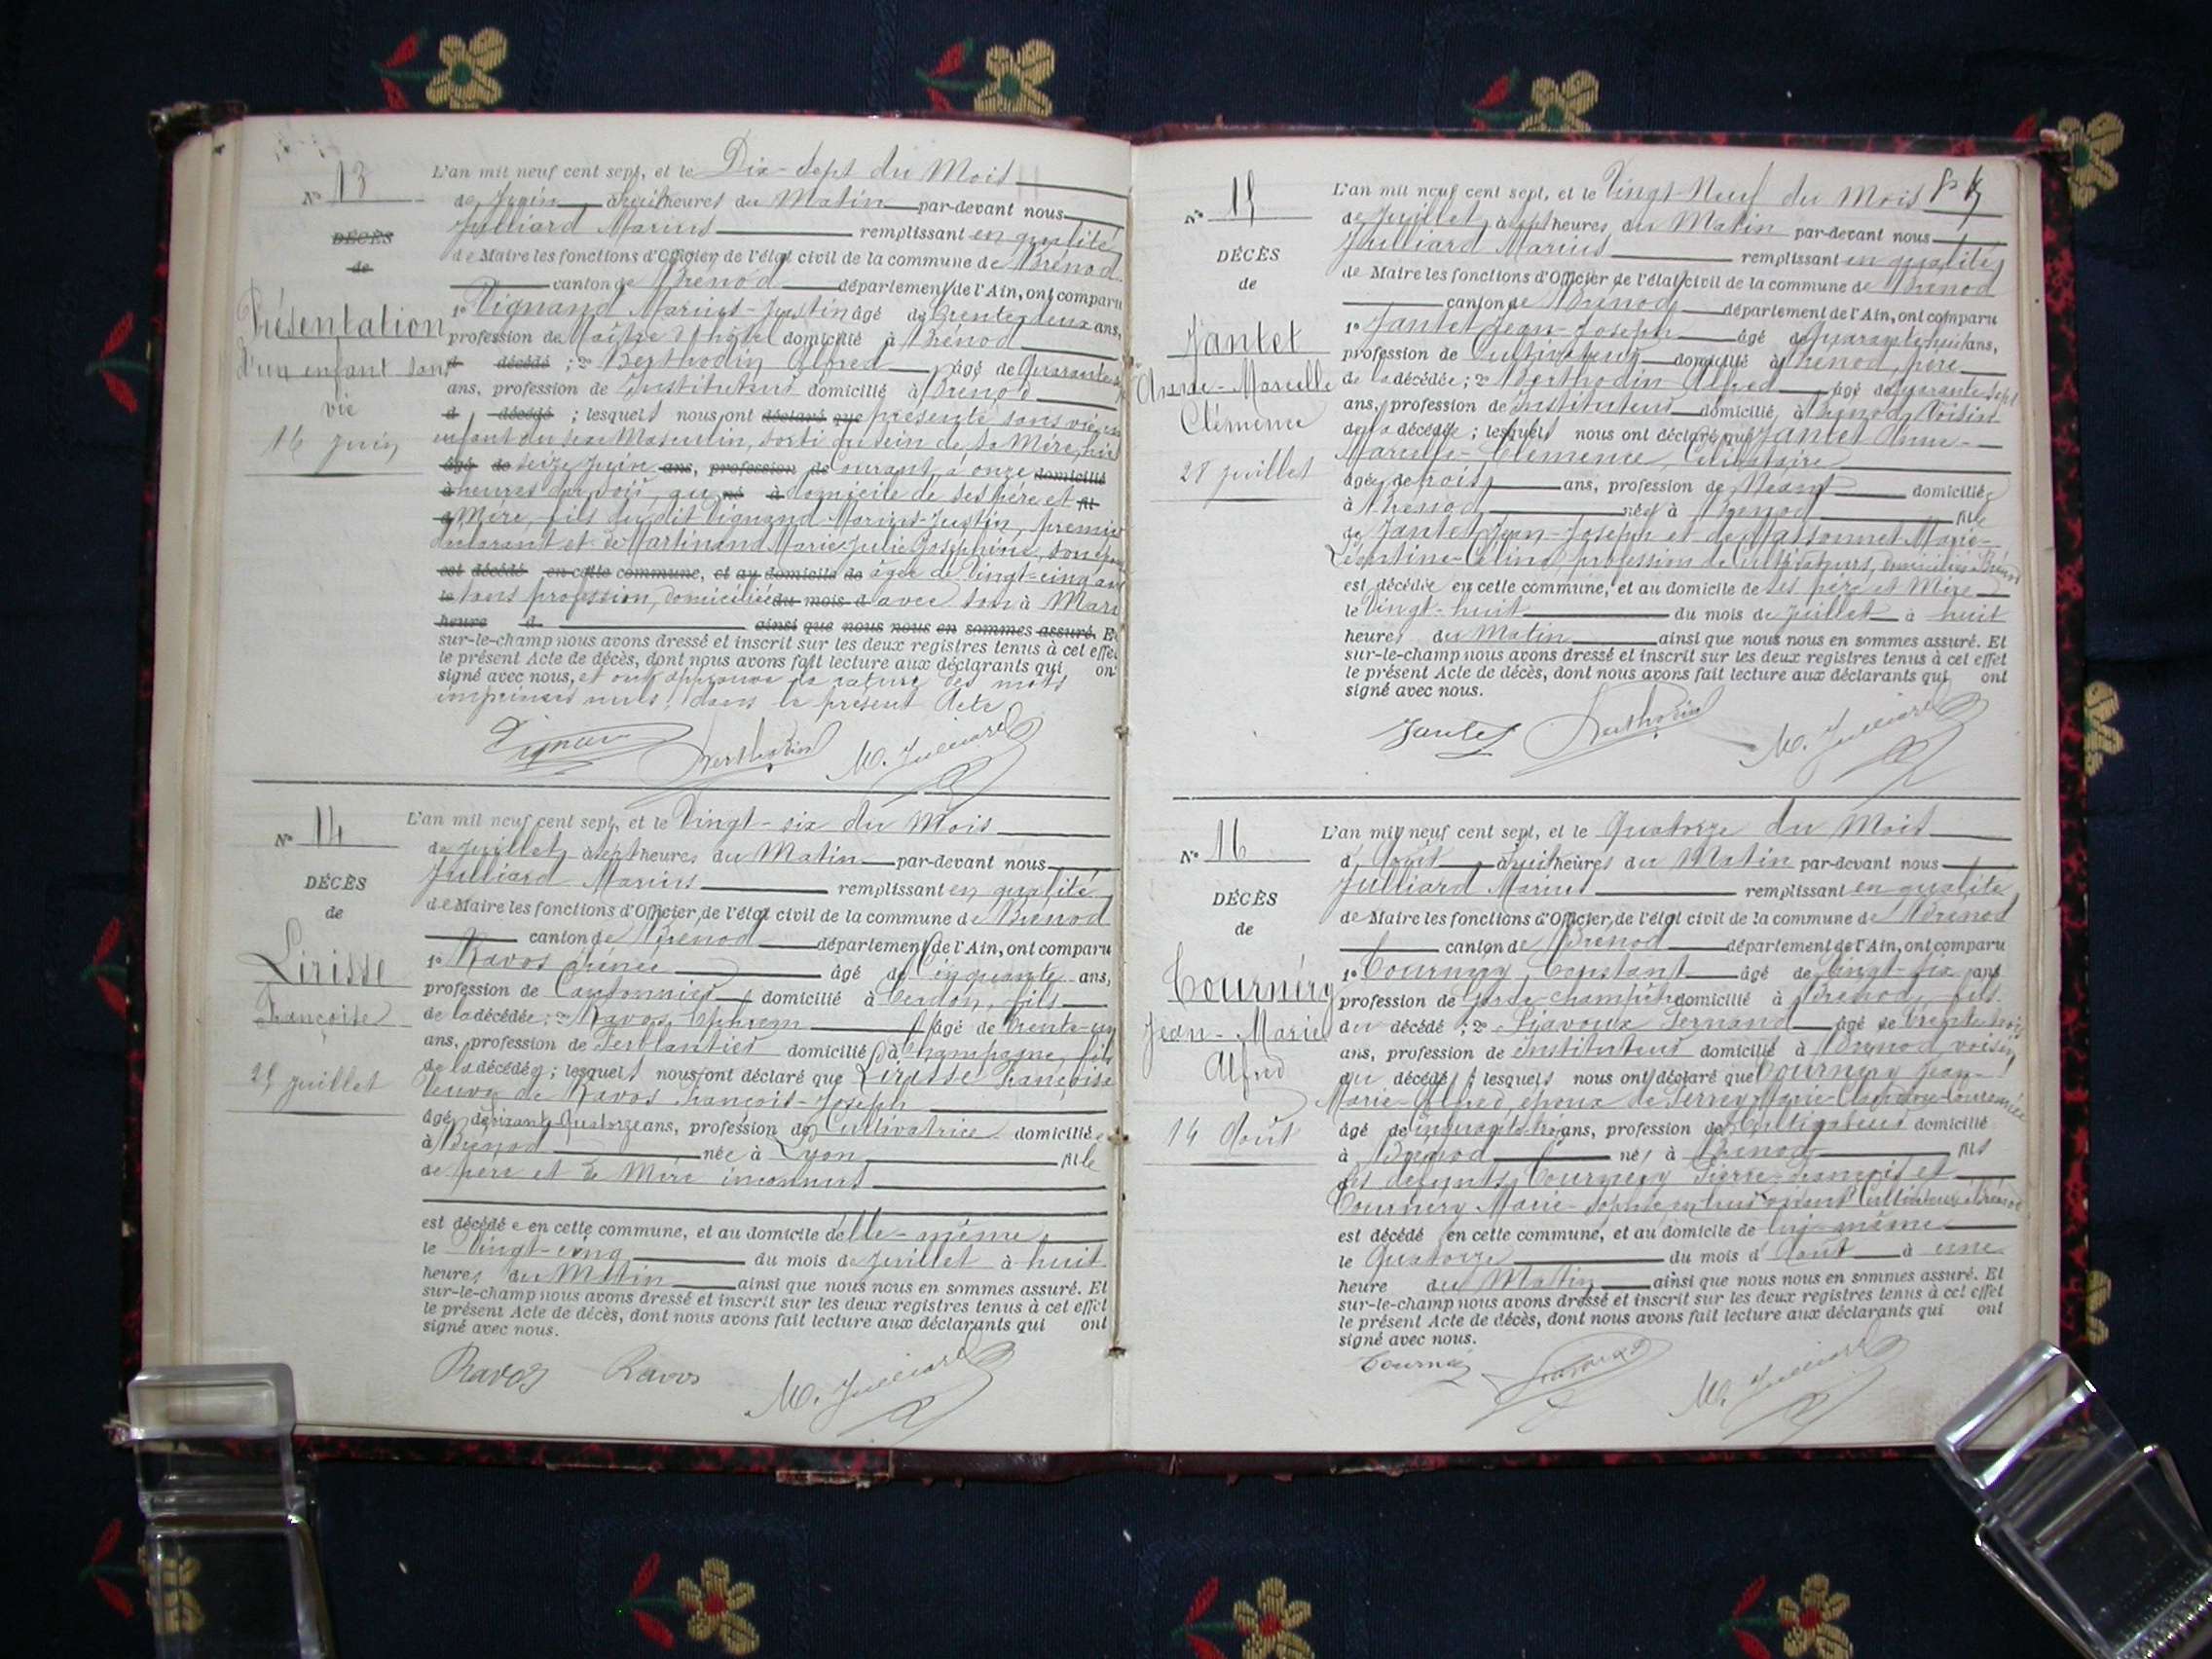 N° 13
DÉCÈS
de
Présentation
d'un enfant sans
vie
16 Juin
L'an mil neuf cent sept, et le Dix-Sept du Mois
de Juin à huit heures du Matin par-devant nous
Julliard Marius remplissant en qualité
de Maire les fonctions d'Officier de l'état civil de la commune de Brénod
canton de Brénod département de l'Ain, ont comparu
1° Vignand Marius-Justin âgé de trente-deux ans,
profession de Maître d'hôtel domicilié à Brénod
d décédé ; 2° Berthodin Alfred âgé de quarante
ans, profession de Instituteur domicilié à Brénod
d décédé ; lesquels nous ont déclaré que présenté sans vie, un
enfant du sexe Masculin, sorti du sein de sa Mère, hier
âgé de seize Juin ans, profession de courant, à onze domicilié
à heures du soir, au né à domicile de ses père et fil
d Mère, fils du dit Vignand Marius-Justin, premier
déclarant et de Martinand Marie Julie Joséphine, son
est décédé en cette commune, et au domicile de âgée de Vingt-cinq ans
le sans profession, domiciliée du mois d avec son à Mari
heure d ainsi que nous nous en sommes assuré. Et
sur-le-champ nous avons dressé et inscrit sur les deux registres tenus à cet effet
le présent Acte de décès, dont nous avons fait lecture aux déclarants qui ont
signé avec nous, et ont approuvé la rature des mots
imprimés nuls, dans le présent Acte
Vignand Berthodin M. Julliard
N° 14
DÉCÈS
de
Lirisse
Françoise
25 Juillet
L'an mil neuf cent sept, et le Vingt-six du Mois
de Juillet à sept heures du Matin par-devant nous
Julliard Marius remplissant en qualité
de Maire les fonctions d'Officier de l'état civil de la commune de Brénod
canton de Brénod département de l'Ain, ont comparu
1° Ravos Irénée âgé de Cinquante ans,
profession de Cantonnier domicilié à Cerdon, fils
de la décédée ; 2° Ravos Ephrem âgé de trente-un
ans, profession de Ferblantier domicilié à Champagne, fils
de la décédée ; lesquels nous ont déclaré que Lirisse Françoise
Veuve de Ravos François-Joseph
âgée de soixante-quatorze ans, profession de Cultivatrice domiciliée
à Brénod née à Lyon fille
de père et de Mère inconnus
est décédée en cette commune, et au domicile d'elle-même
le Vingt-cinq du mois de Juillet à huit
heures du Matin ainsi que nous nous en sommes assuré. Et
sur-le-champ nous avons dressé et inscrit sur les deux registres tenus à cet effet
le présent Acte de décès, dont nous avons fait lecture aux déclarants qui ont
signé avec nous.
Ravos Ravos M. Julliard
N° 15
DÉCÈS
de
Jantet
Anne-Marcelle
Clémence
28 Juillet
L'an mil neuf cent sept, et le Vingt-Neuf du Mois
de Juillet à sept heures du Matin par-devant nous
Julliard Marius remplissant en qualité
de Maire les fonctions d'Officier de l'état civil de la commune de Brénod
canton de Brénod département de l'Ain, ont comparu
1° Jantet Jean-Joseph âgé de quarante-huit ans,
profession de Cultivateur domicilié à Brénod, père
de la décédée ; 2° Berthodin Alfred âgé de quarante-sept
ans, profession de Instituteur domicilié à Brénod, Voisin
de la décédée ; lesquels nous ont déclaré que Jantet Anne-
Marcelle-Clémence, Célibataire
âgée de trois ans, profession de Néant domiciliée
à Brénod née à Brénod fille
de Jantet Jean-Joseph et de Massonnet Marie-
Léontine-Céline profession de Cultivateurs, domiciliés à Brénod
est décédée en cette commune, et au domicile de ses père et Mère
le Vingt-huit du mois de Juillet à huit
heures du Matin ainsi que nous nous en sommes assuré. Et
sur-le-champ nous avons dressé et inscrit sur les deux registres tenus à cet effet
le présent Acte de décès, dont nous avons fait lecture aux déclarants qui ont
signé avec nous.
Jantet Berthodin M. Julliard
N° 16
DÉCÈS
de
Tournéry
Jean-Marie
Alfred
14 Août
L'an mil neuf cent sept, et le Quatorze du Mois
d'Août à huit heures du Matin par-devant nous
Julliard Marius remplissant en qualité
de Maire les fonctions d'Officier de l'état civil de la commune de Brénod
canton de Brénod département de l'Ain, ont comparu
1° Tournéry Constant âgé de Vingt-six ans
profession de Garde-champêtre domicilié à Brénod, fils
du décédé ; 2° Fernand âgé de trente-trois
ans, profession de Instituteur domicilié à Brénod, voisin
du décédé ; lesquels nous ont déclaré que Tournéry Jean-
Marie-Alfred, époux de Serrey Marie
âgé de cinquante-trois ans, profession de Cultivateur domicilié
à Brénod né à Brénod fils
des défunts Tournéry Pierre-François et
Tournéry Marie- en leur vivant Cultivateurs à Brénod
est décédé en cette commune, et au domicile de lui-même
le Quatorze du mois d'Août à une
heure du Matin ainsi que nous nous en sommes assuré. Et
sur-le-champ nous avons dressé et inscrit sur les deux registres tenus à cet effet
le présent Acte de décès, dont nous avons fait lecture aux déclarants qui ont
signé avec nous.
M. Julliard